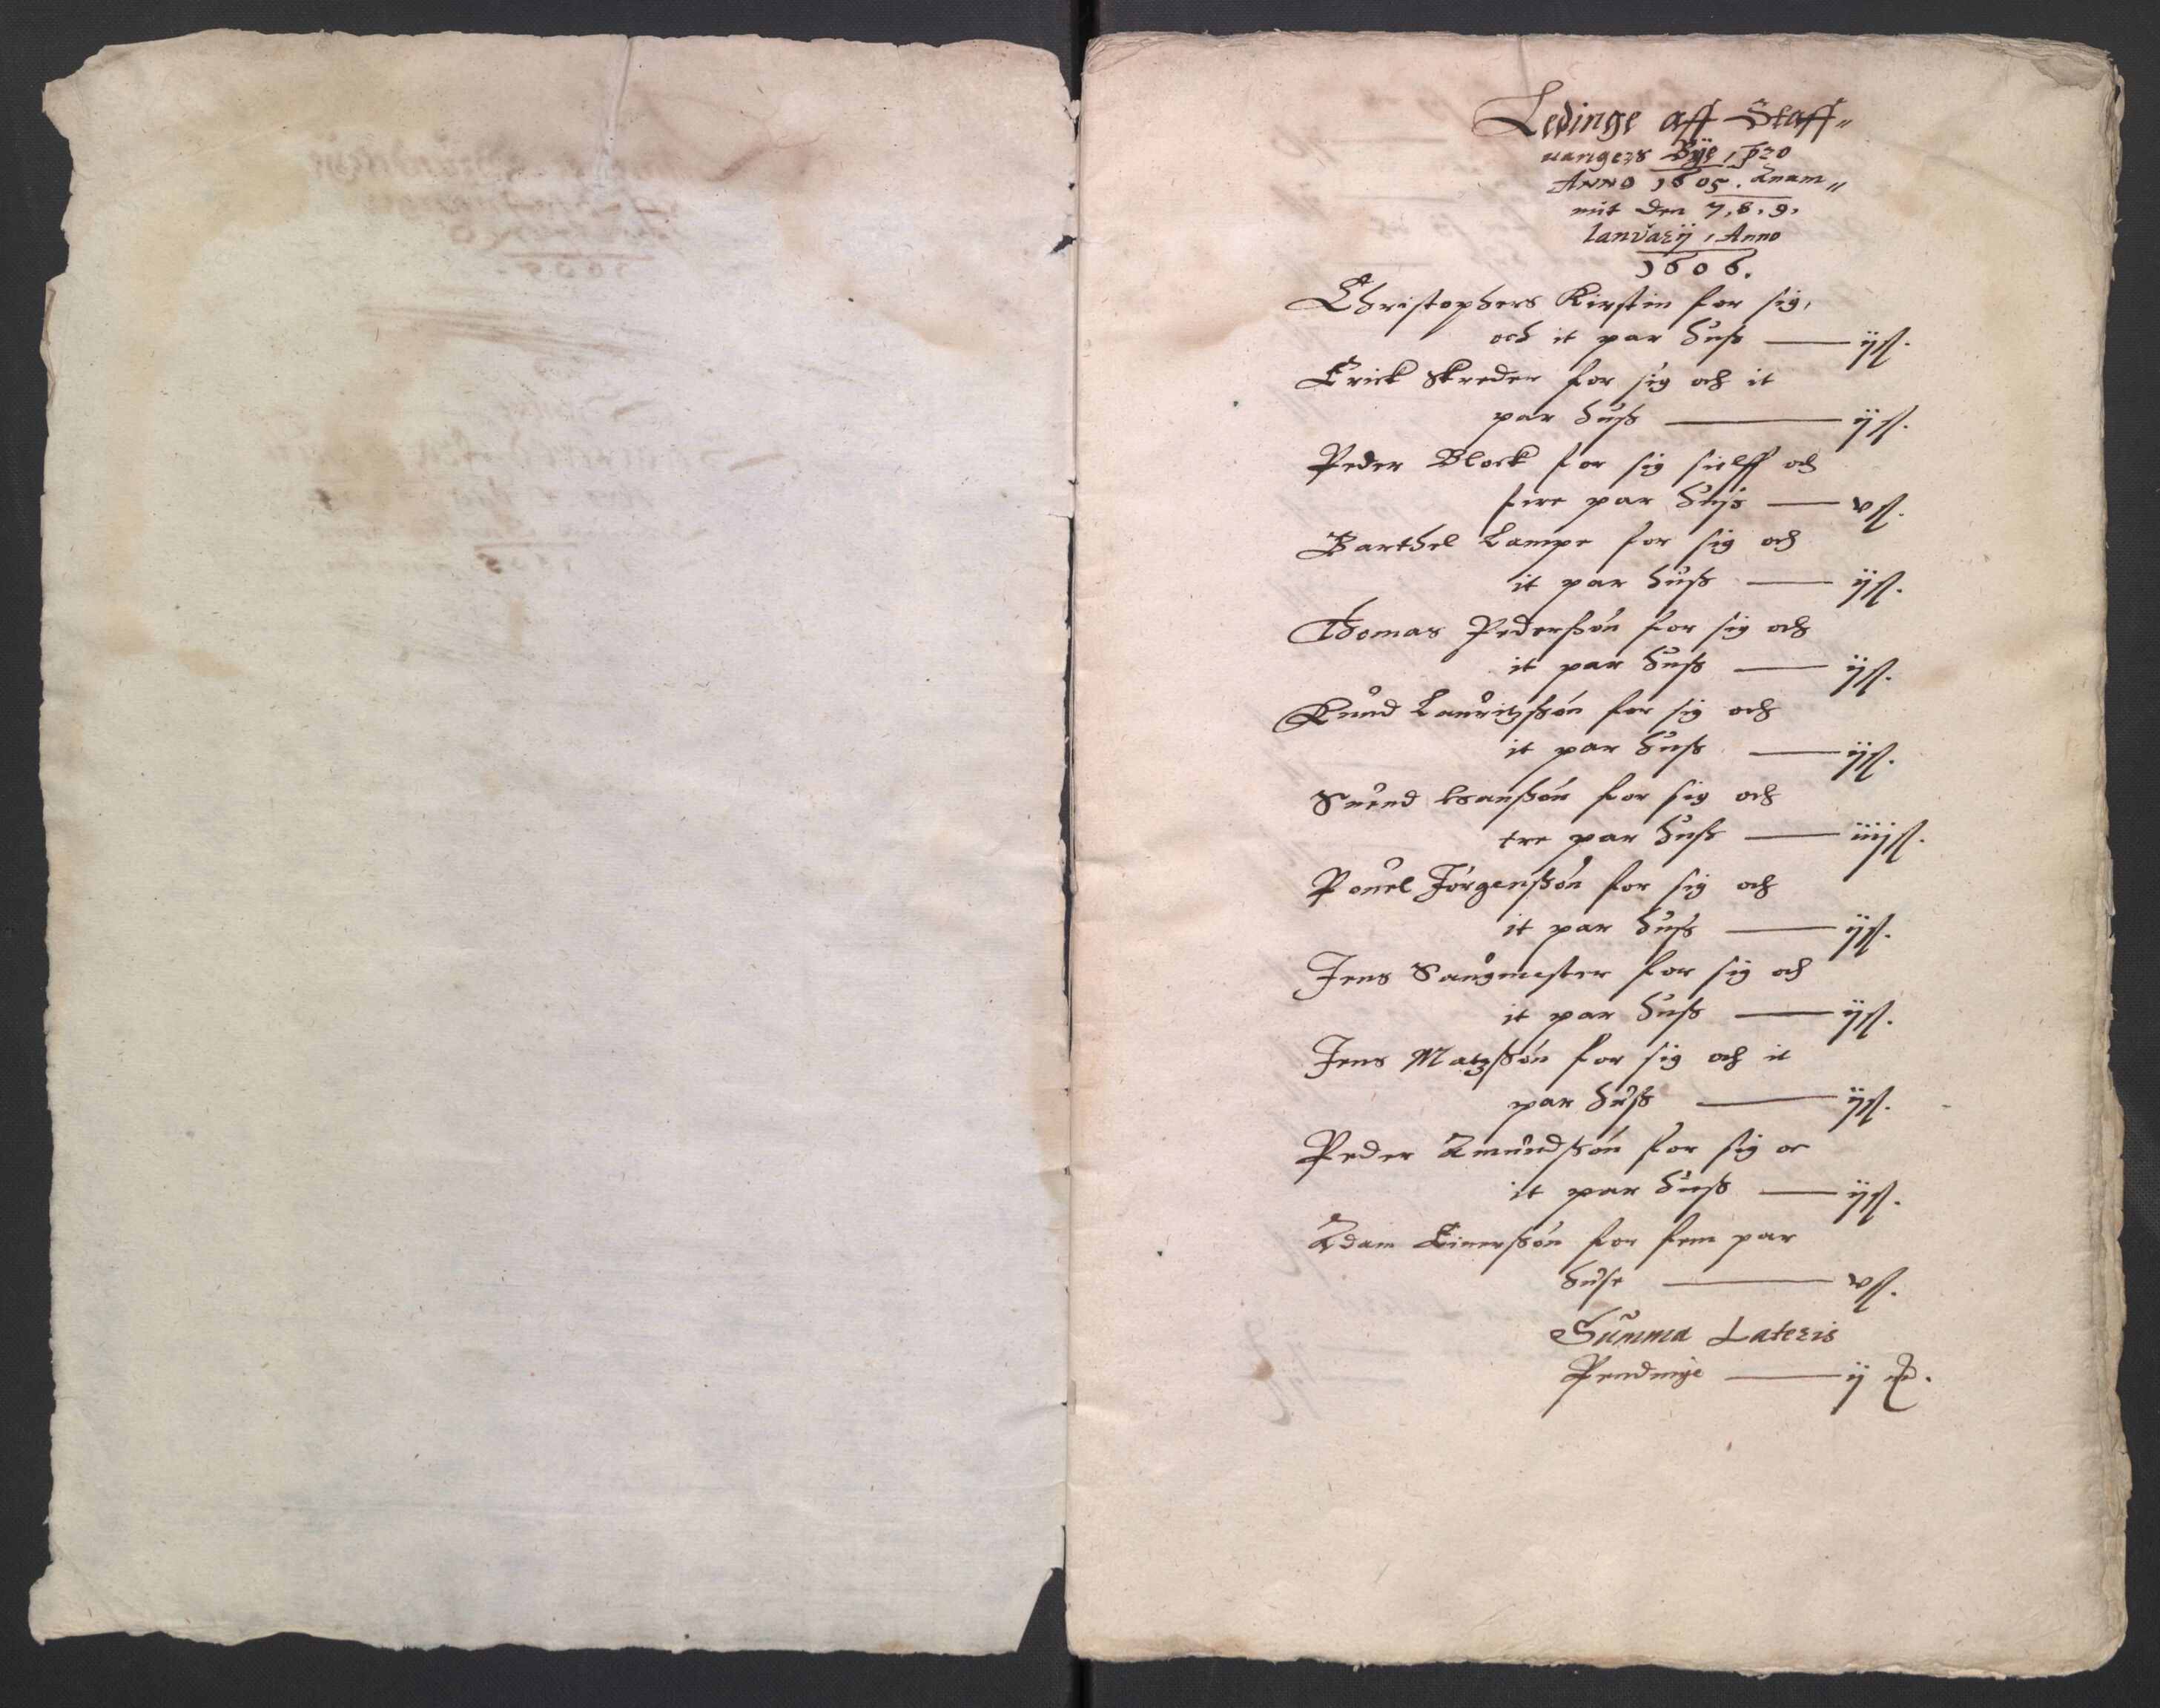 Ledinge aff Staff„
uangers Bÿe, pro
ANNO 1605. Anam„
mit den 7, 8, 9,
Ianuarij, Anno
1606.
Christophers Kirstin for sig,
och it par huss — ij ß.
Erick skreder for sig och it
par huss — ij ß.
Peder Block for sig sielff och
fire par huss — v ß.
Barthel Lampe for sig och
it par huss — ij ß.
Thomas Pederssøn for sig och
it par huss — ij ß.
Knud Lauritzssøn for sig och
it par huss — ij ß.
Suend Hanssøn for sig och
tre par huss — iiij ß.
Pouel Jørgenssøn for sig och
it par huss — ij ß.
Jens Sangmester for sig och
it par huss — ij ß.
Jens Matzssøn for sig och it
par huss — ij ß.
Peder Amundssøn for sig oc
it par huss — ij ß.
Adam Einerssøn for fem par
huse — v ß.
Summa Lateris
Pendinge — ij